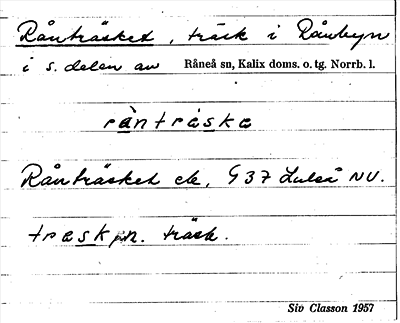 Rånträsket, träsk i Rånbyn
i s. delen av Råneå sn, Kalix doms. o. tg. Norrb. l.
ràntráska
Rånträsket ek, G 37 Luleå NV.
träsk, n. träsk.
Siv Classon 1957